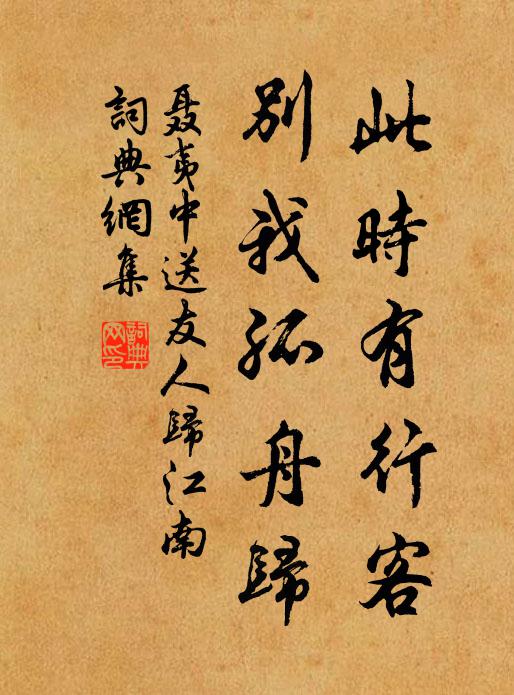 此時有行客
別我孤舟歸
聶夷中送友人歸江南
詞典網集
詞典網印